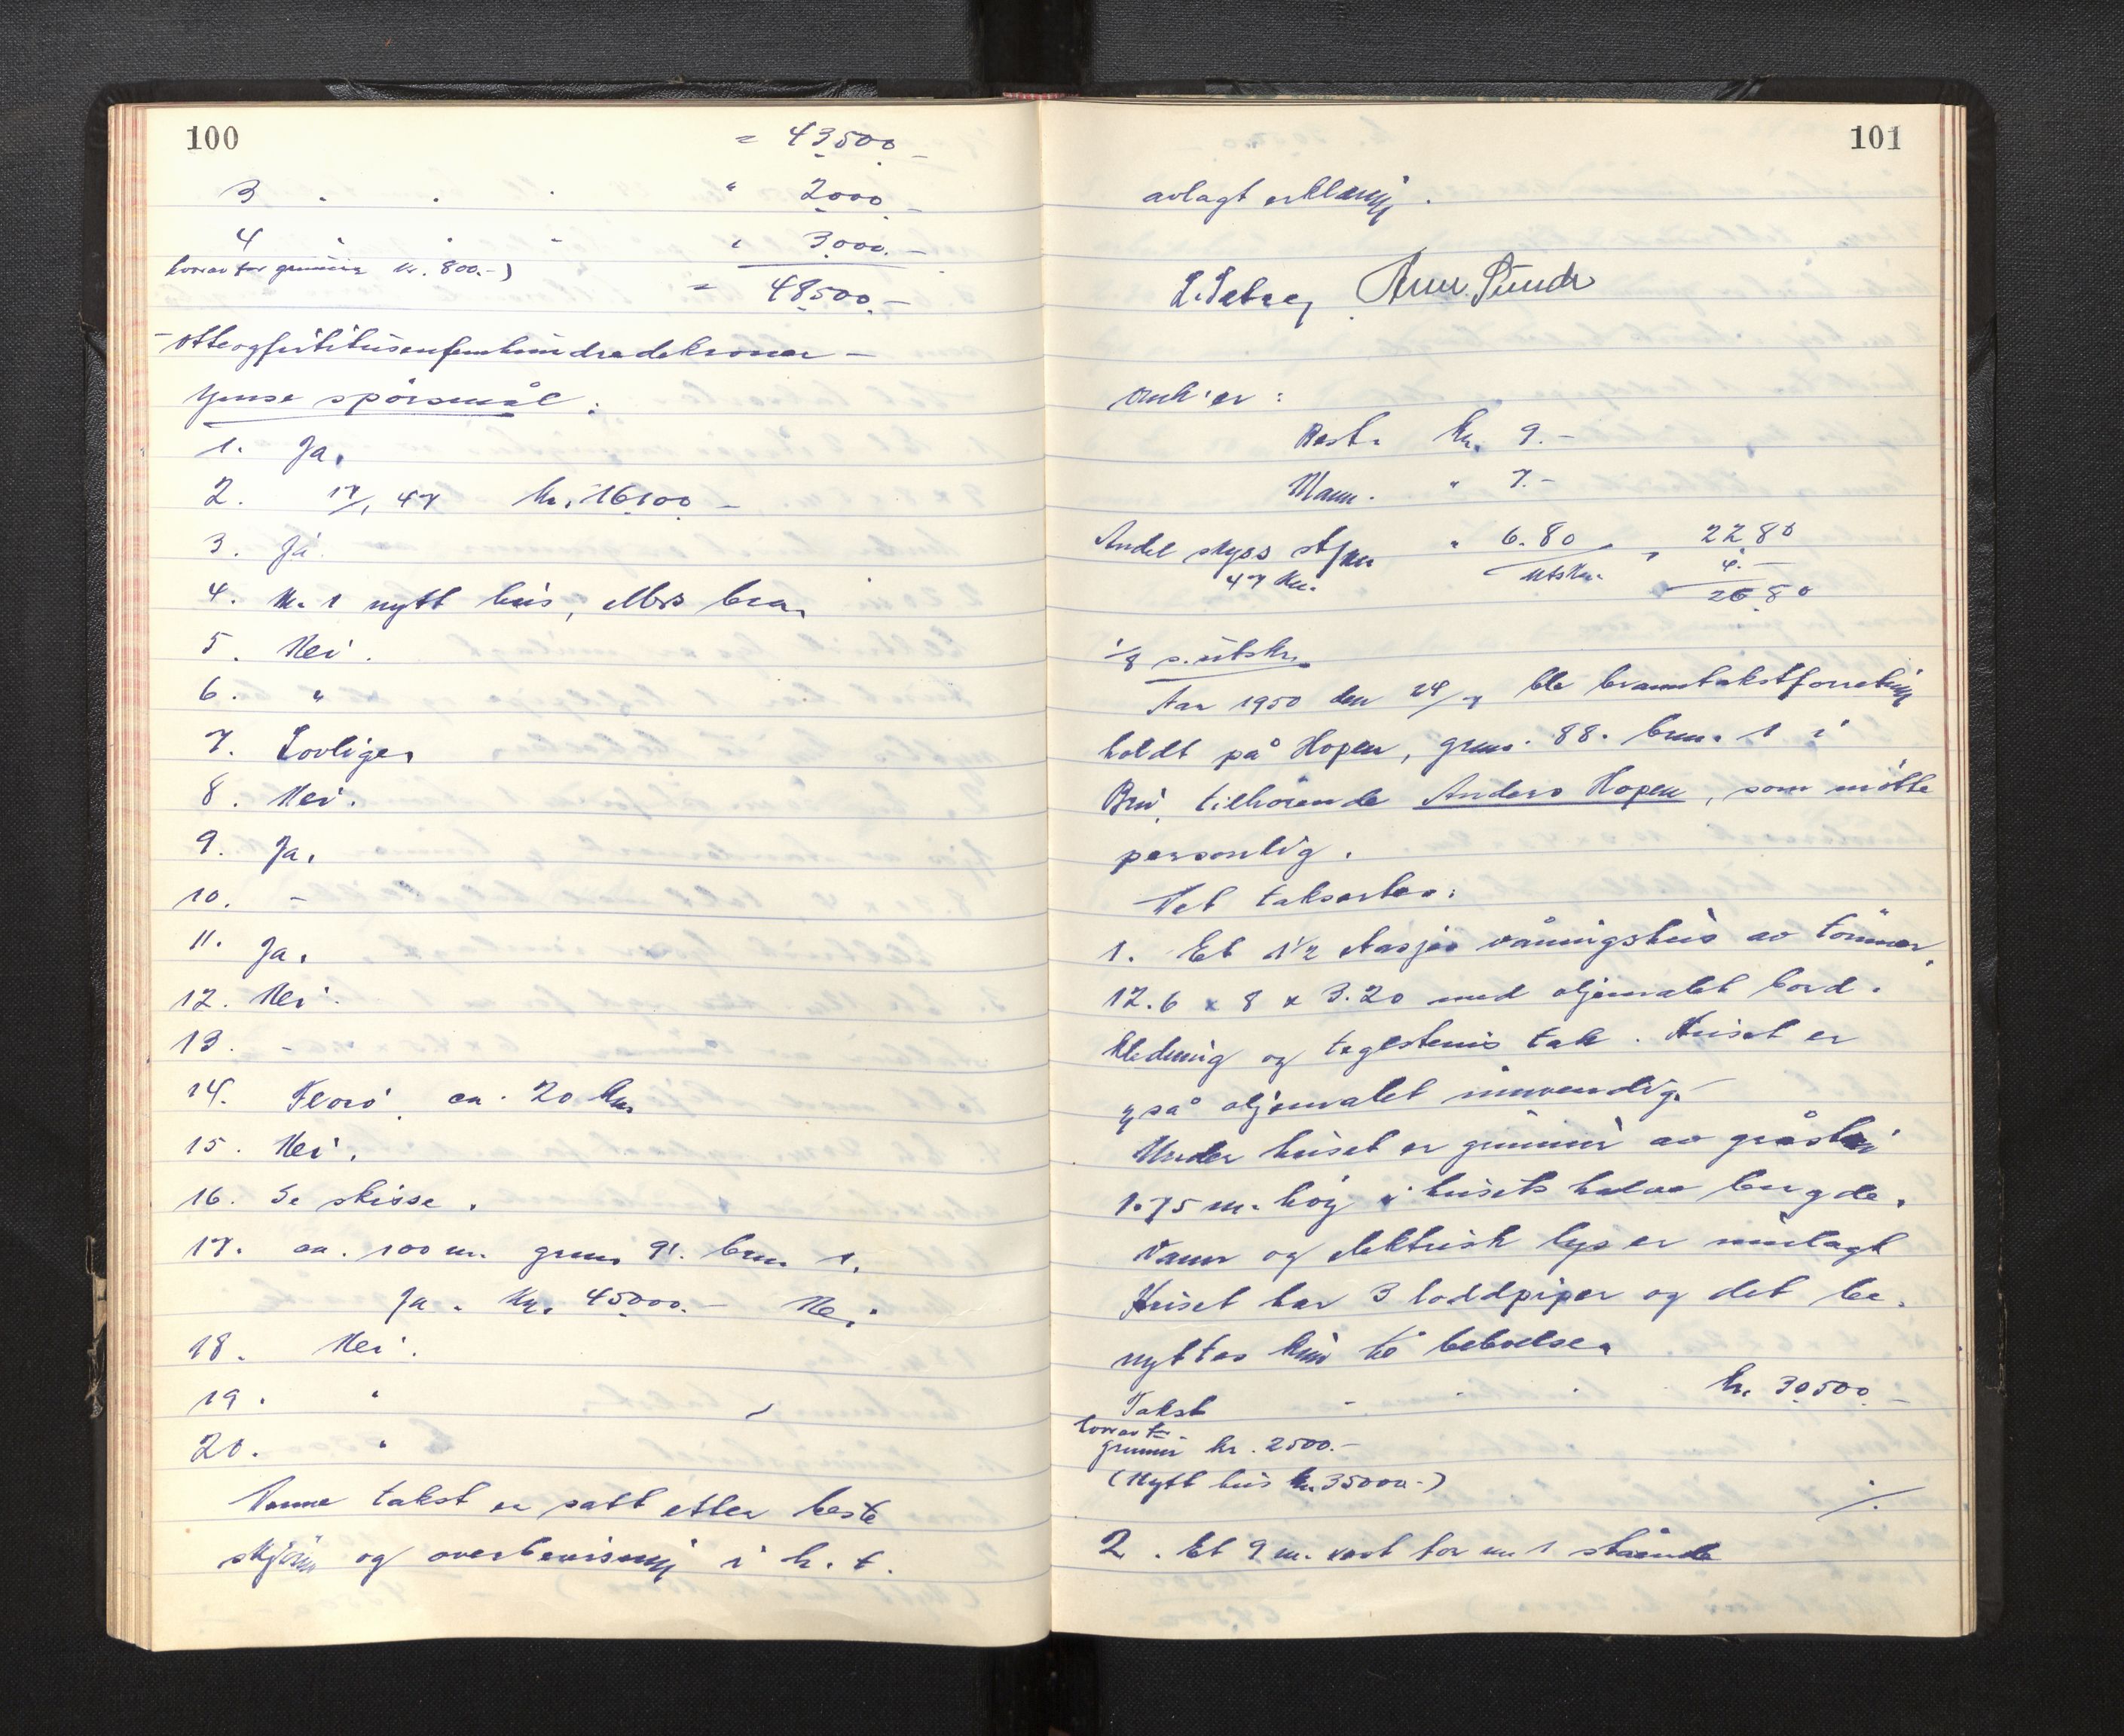 100
= 43500.-
3 " " " " 2000.-
4 " " " " 3000.-
hvorav for grunnen kr. 800.-)
= 48500.-
- otteogfirtitusenfemhundredekroner -
Ymse spörsmål:
1. Ja.
2. 17/1 47 kr. 16100.-
3. Ja
4. Nr. 1 nytt hus, ellers bra.
5. Nei.
6. "
7. Lovlige.
8. Nei.
9. Ja.
10. -
11. Ja.
12. Nei.
13. -
14. Florö ca. 20 km
15. Nei.
16. Se skisse.
17. ca. 100 m. grnr. 91. brnr. 1.
Ja. Kr. 45000.- Nei.
18. Nei.
19. "
20. "
Denne takst er satt etter beste
skjönn og overbevisning i h. t.
101
avlagt erklæring.
Arne Sunde
Rest. kr. 9.-
Mann. " 7.-
Andel skyss
47 km.
" 6.80 = 22.80
utskr. 4.-
26.80
1/8 s. utskr.
Aar 1950 den 24/7 ble branntakstforretning
holdt på Hopen, grnr. 88. brnr. 1 i
Bru, tilhörende Anders Hopen, som mötte
personlig.
Det takseres:
1. Et 1½ etasjes våningshus av tömmer,
12.6 x 8 x 3.20 med oljemalt bord-
kledning og teglstens tak. Huset er
også oljemalet innvendig.
Under huset er grunnmur av gråsten
1.75 m. höy i husets halve lengde.
Vann og elektrisk lys er innlagt
Huset har 3 loddpiper og det be-
nyttes kun til beboelse.
Takst - - - kr. 30500.-
hvorav for
grunnen kr. 2500.-
(Nytt hus kr. 35000.-)
2. Et 9 m. vest for nr. 1 stående